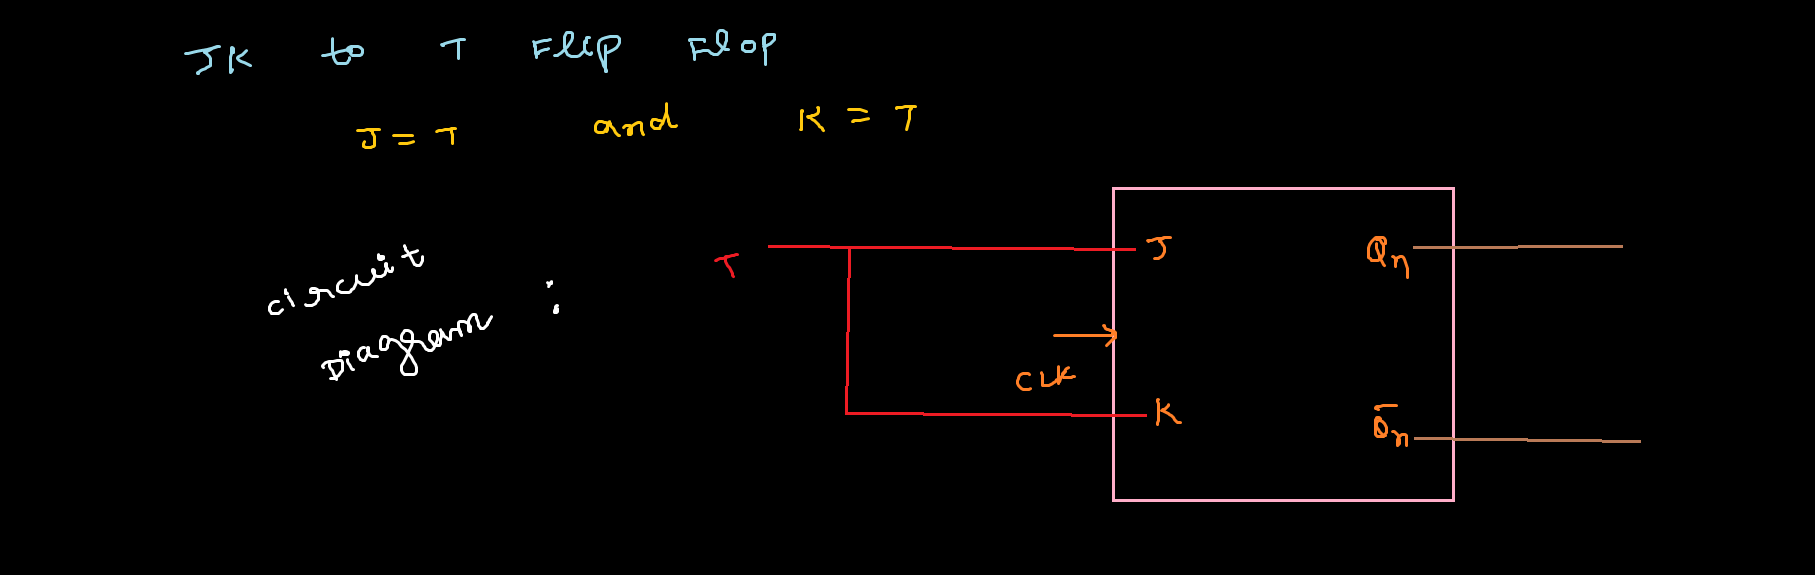 JK to T Flip Flop
J = T and K = T
circuit
Diagram :
T
J
K
CLK
Qn
Q̅n